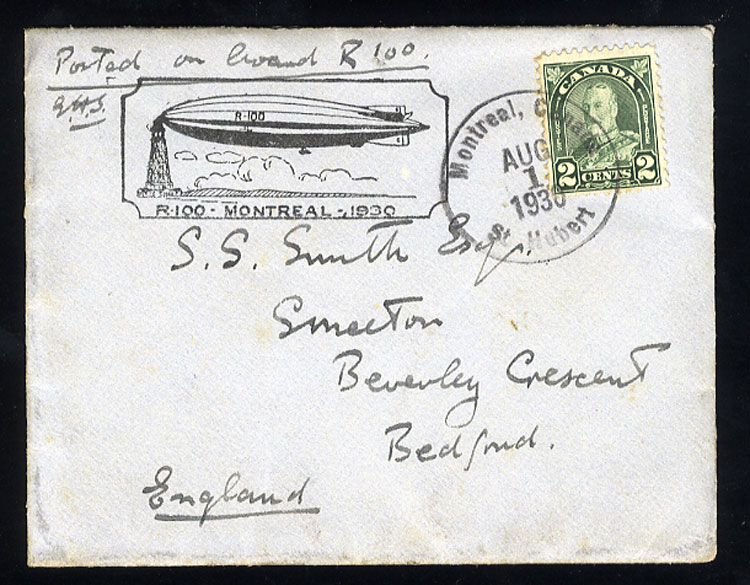 Posted on board R 100.
R-100
R-100 - MONTREAL - 1930
Montreal, Canada
AUG
1
1930
St. Hubert
CANADA
2 CENTS 2
S. S. Smith Esq.
Smeeton
Beverley Crescent
Bedford.
England